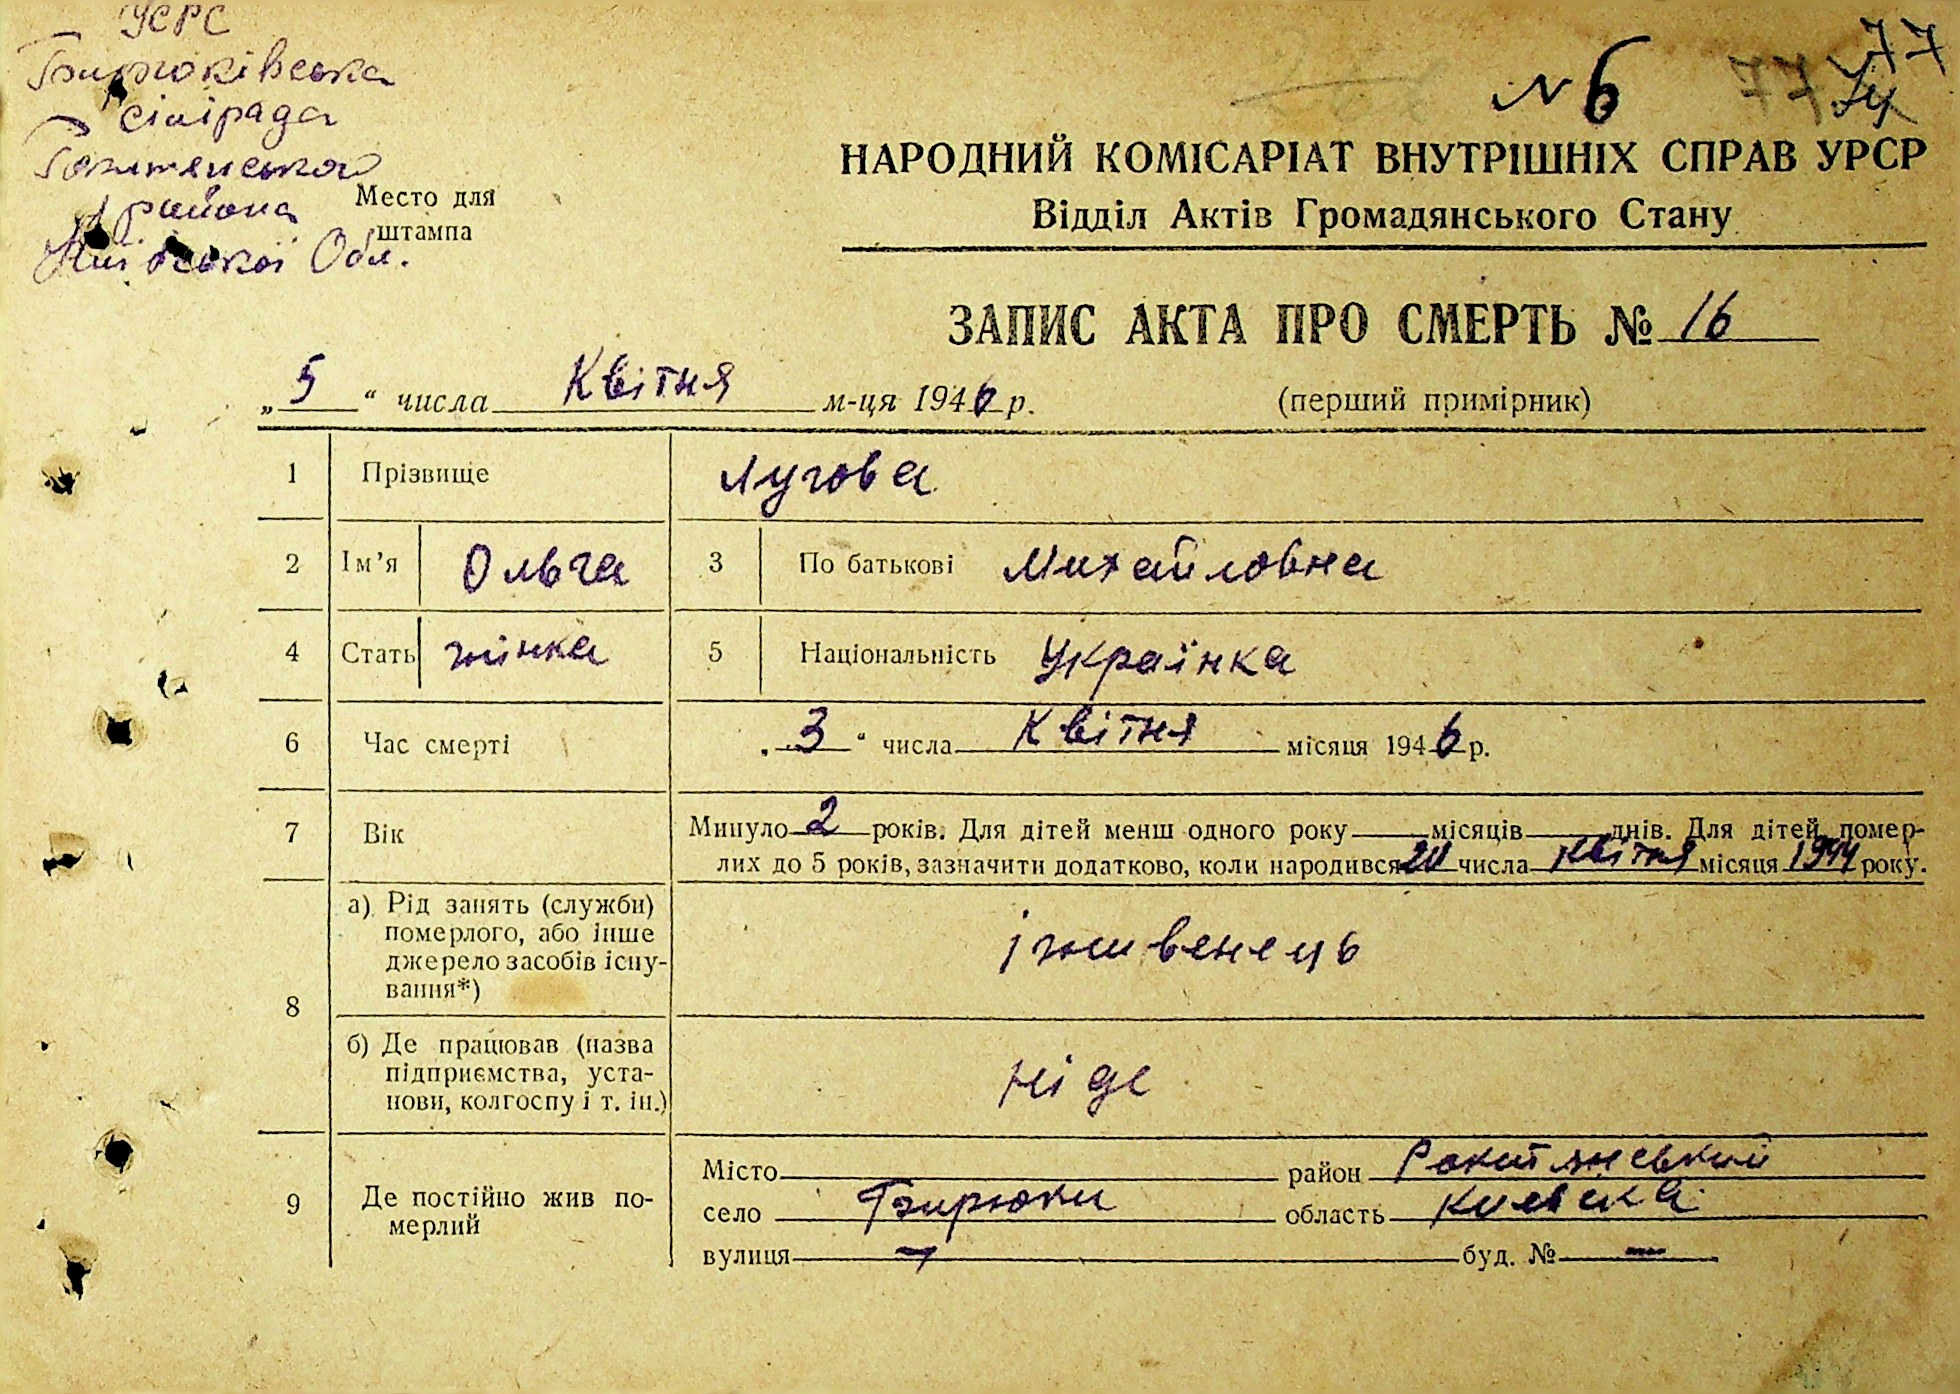 УСРС
Бирюківська
сілірада
Рокитянського
района
Київської Обл.
Место для
штампа
№ 6
77
77
НАРОДНИЙ КОМІСАРІАТ ВНУТРІШНІХ СПРАВ УРСР
Відділ Актів Громадянського Стану
ЗАПИС АКТА ПРО СМЕРТЬ № 16
„5“ числа Квітня м-ця 1946 р. (перший примірник)
1 Прізвище Лугова
2 Ім'я Ольга 3 По батькові Михайловна
4 Стать жінка 5 Національність Українка
6 Час смерті „3“ числа Квітня місяця 1946 р.
7 Вік Минуло 2 років. Для дітей менш одного року місяців днів. Для дітей, помер-
лих до 5 років, зазначити додатково, коли народився числа квітня місяця 1944 року.
8 а) Рід занять (служби)
померлого, або інше
джерело засобів існу-
вання*)
іживенець
б) Де працював (назва
підприємства, уста-
нови, колгоспу і т. ін.)
ніде
9 Де постійно жив по-
мерлий
Місто район Рокитянський
село Бирюки область Киевска
вулиця — буд. № —